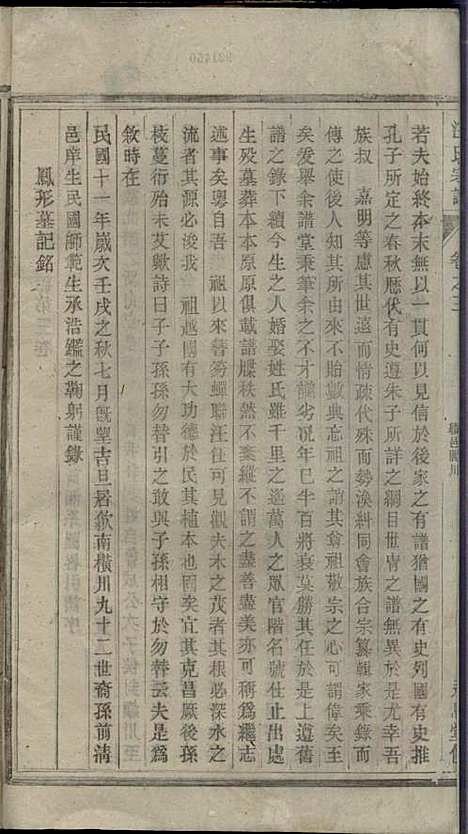 若夫始終本末無以一貫何以見信於後家之有譜猶國之有史列國有史推
孔子所定之春秋歷代有史遵朱子所詳之綱目世胄之譜無異於是尤幸吾
族叔　嘉明等慮其世遠而情疎代殊而勢渙糾同會族合宗纂輯家乘錄而
傳之使後人知其所由來不貽數典忘祖之誚其尊祖敬宗之心可謂偉矣至
矣爰舉余譜堂秉筆余之不才才譾劣況年已半百將衰莫勝其任於是上遵舊
譜之錄下續今生之人婚娶姓氏雖千里之遙萬人之眾官階名號仕止出處
生歿墓葬本本原原俱載譜牒秩然不紊縱不謂之盡善盡美亦可稱為繼志
述事矣粵自吾　祖以來簪笏蟬聯汪汪可見觀夫木之茂者其根必深水之
流者其源必浚我　祖越國有大功德於民其植本也固矣宜其克昌厥後孫
枝蔓衍殆未艾歟詩曰子子孫孫勿替引之敢與子孫相守於勿替云夫是為
敘時在
民國十一年歲次壬戌之秋七月既望吉旦居歙南橫川九十二世裔孫前清
邑庠生民國師範生承浩鑑之鞠躬謹錄
鳳形墓記銘
汪氏宗譜
卷之三